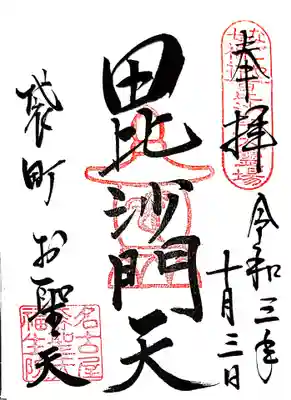 奉拝
令和三年
十月三日
毘沙門天
袋町 お聖天
名古屋
福生院